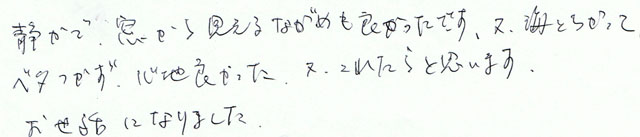 静かで、窓から見えるながめも良かったです、又、海とちがって
ベタつかず、心地良かった、又、これたらと思います、
お世話になりました、